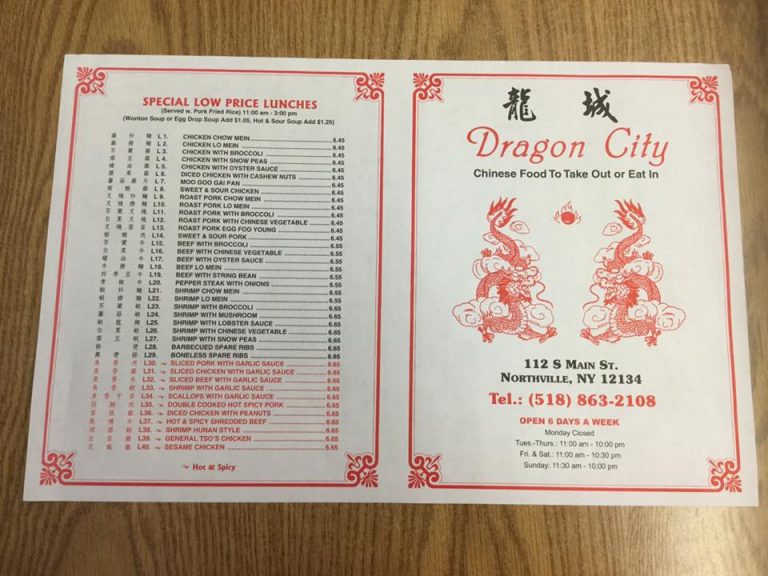 SPECIAL LOW PRICE LUNCHES
(Served w. Pork Fried Rice) 11:00 am - 3:00 pm
(Wonton Soup or Egg Drop Soup Add $1.05, Hot & Sour Soup Add $1.25)
L 1. CHICKEN CHOW MEIN 6.45
L 2. CHICKEN LO MEIN 6.45
L 3. CHICKEN WITH BROCCOLI 6.45
L 4. CHICKEN WITH SNOW PEAS 6.45
L 5. CHICKEN WITH OYSTER SAUCE 6.45
L 6. DICED CHICKEN WITH CASHEW NUTS 6.45
L 7. MOO GOO GAI PAN 6.45
L 8. SWEET & SOUR CHICKEN 6.45
L 9. ROAST PORK CHOW MEIN 6.45
L10. ROAST PORK LO MEIN 6.45
L11. ROAST PORK WITH BROCCOLI 6.45
L12. ROAST PORK WITH CHINESE VEGETABLE 6.45
L13. ROAST PORK EGG FOO YOUNG 6.45
L14. SWEET & SOUR PORK 6.45
L15. BEEF WITH BROCCOLI 6.55
L16. BEEF WITH CHINESE VEGETABLE 6.55
L17. BEEF WITH OYSTER SAUCE 6.55
L18. BEEF LO MEIN 6.55
L19. BEEF WITH STRING BEAN 6.55
L20. PEPPER STEAK WITH ONIONS 6.55
L21. SHRIMP CHOW MEIN 6.55
L22. SHRIMP LO MEIN 6.55
L23. SHRIMP WITH BROCCOLI 6.55
L24. SHRIMP WITH MUSHROOM 6.55
L25. SHRIMP WITH LOBSTER SAUCE 6.55
L26. SHRIMP WITH CHINESE VEGETABLE 6.55
L27. SHRIMP WITH SNOW PEAS 6.55
L28. BARBECUED SPARE RIBS 6.65
L29. BONELESS SPARE RIBS 6.65
L30. SLICED PORK WITH GARLIC SAUCE 6.65
L31. SLICED CHICKEN WITH GARLIC SAUCE 6.65
L32. SLICED BEEF WITH GARLIC SAUCE 6.65
L33. SHRIMP WITH GARLIC SAUCE 6.65
L34. SCALLOPS WITH GARLIC SAUCE 6.65
L35. DOUBLE COOKED HOT SPICY PORK 6.65
L36. DICED CHICKEN WITH PEANUTS 6.65
L37. HOT & SPICY SHREDDED BEEF 6.65
L38. SHRIMP HUNAN STYLE 6.65
L39. GENERAL TSO'S CHICKEN 6.65
L40. SESAME CHICKEN 6.65
Hot & Spicy
龍 城
Dragon City
Chinese Food To Take Out or Eat In
112 S MAIN ST.
NORTHVILLE, NY 12134
Tel.: (518) 863-2108
OPEN 6 DAYS A WEEK
Monday Closed
Tues.-Thurs.: 11:00 am - 10:00 pm
Fri. & Sat.: 11:00 am - 10:30 pm
Sunday: 11:30 am - 10:00 pm